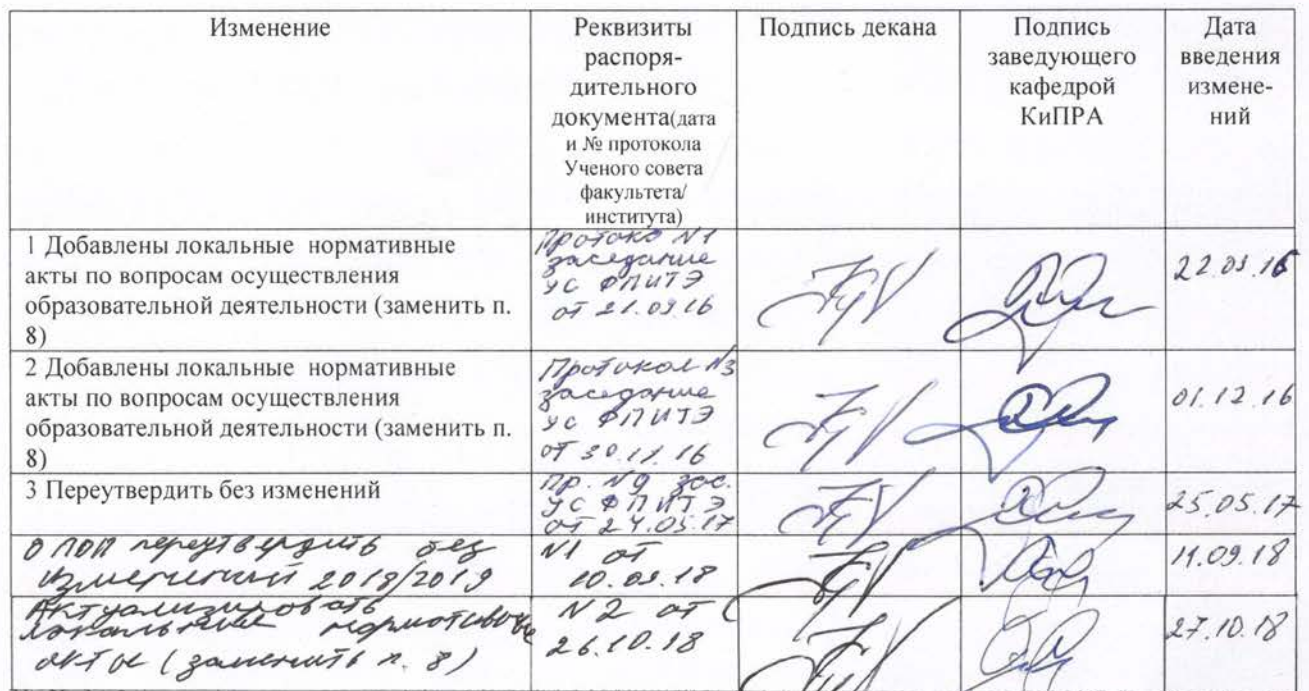 Изменение
Реквизиты
распоря-
дительного
документа(дата
и № протокола
Ученого совета
факультета/
института)
Подпись декана
Подпись
заведующего
кафедрой
КиПРА
Дата
введения
измене-
ний
1 Добавлены локальные нормативные
акты по вопросам осуществления
образовательной деятельности (заменить п.
8)
Протоко N1
заседание
УС ФПИТЭ
от 21.09.16
22.09.16
2 Добавлены локальные нормативные
акты по вопросам осуществления
образовательной деятельности (заменить п.
8)
Протокол N3
заседание
УС ФПИТЭ
от 30.11.16
01.12.16
3 Переутвердить без изменений
Пр. N9 зас.
УС ФПИТЭ
от 24.05.17
25.05.17
ОПОП переутвердить без
изменений 2018/2019
N1 от
10.09.18
11.09.18
Актуализировать
локальные нормативные
акты (заменить п. 8)
N2 от
26.10.18
27.10.18